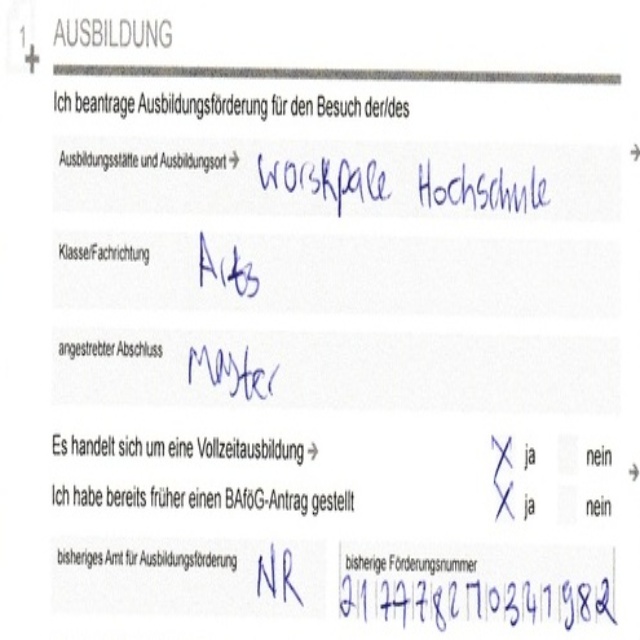 1 AUSBILDUNG
Ich beantrage Ausbildungsförderung für den Besuch der/des
Ausbildungsstätte und Ausbildungsort → Worskpale Hochschule
Klasse/Fachrichtung Arts
angestrebter Abschluss Master
Es handelt sich um eine Vollzeitausbildung → X ja nein
Ich habe bereits früher einen BAföG-Antrag gestellt X ja nein
bisheriges Amt für Ausbildungsförderung NR
bisherige Förderungsnummer